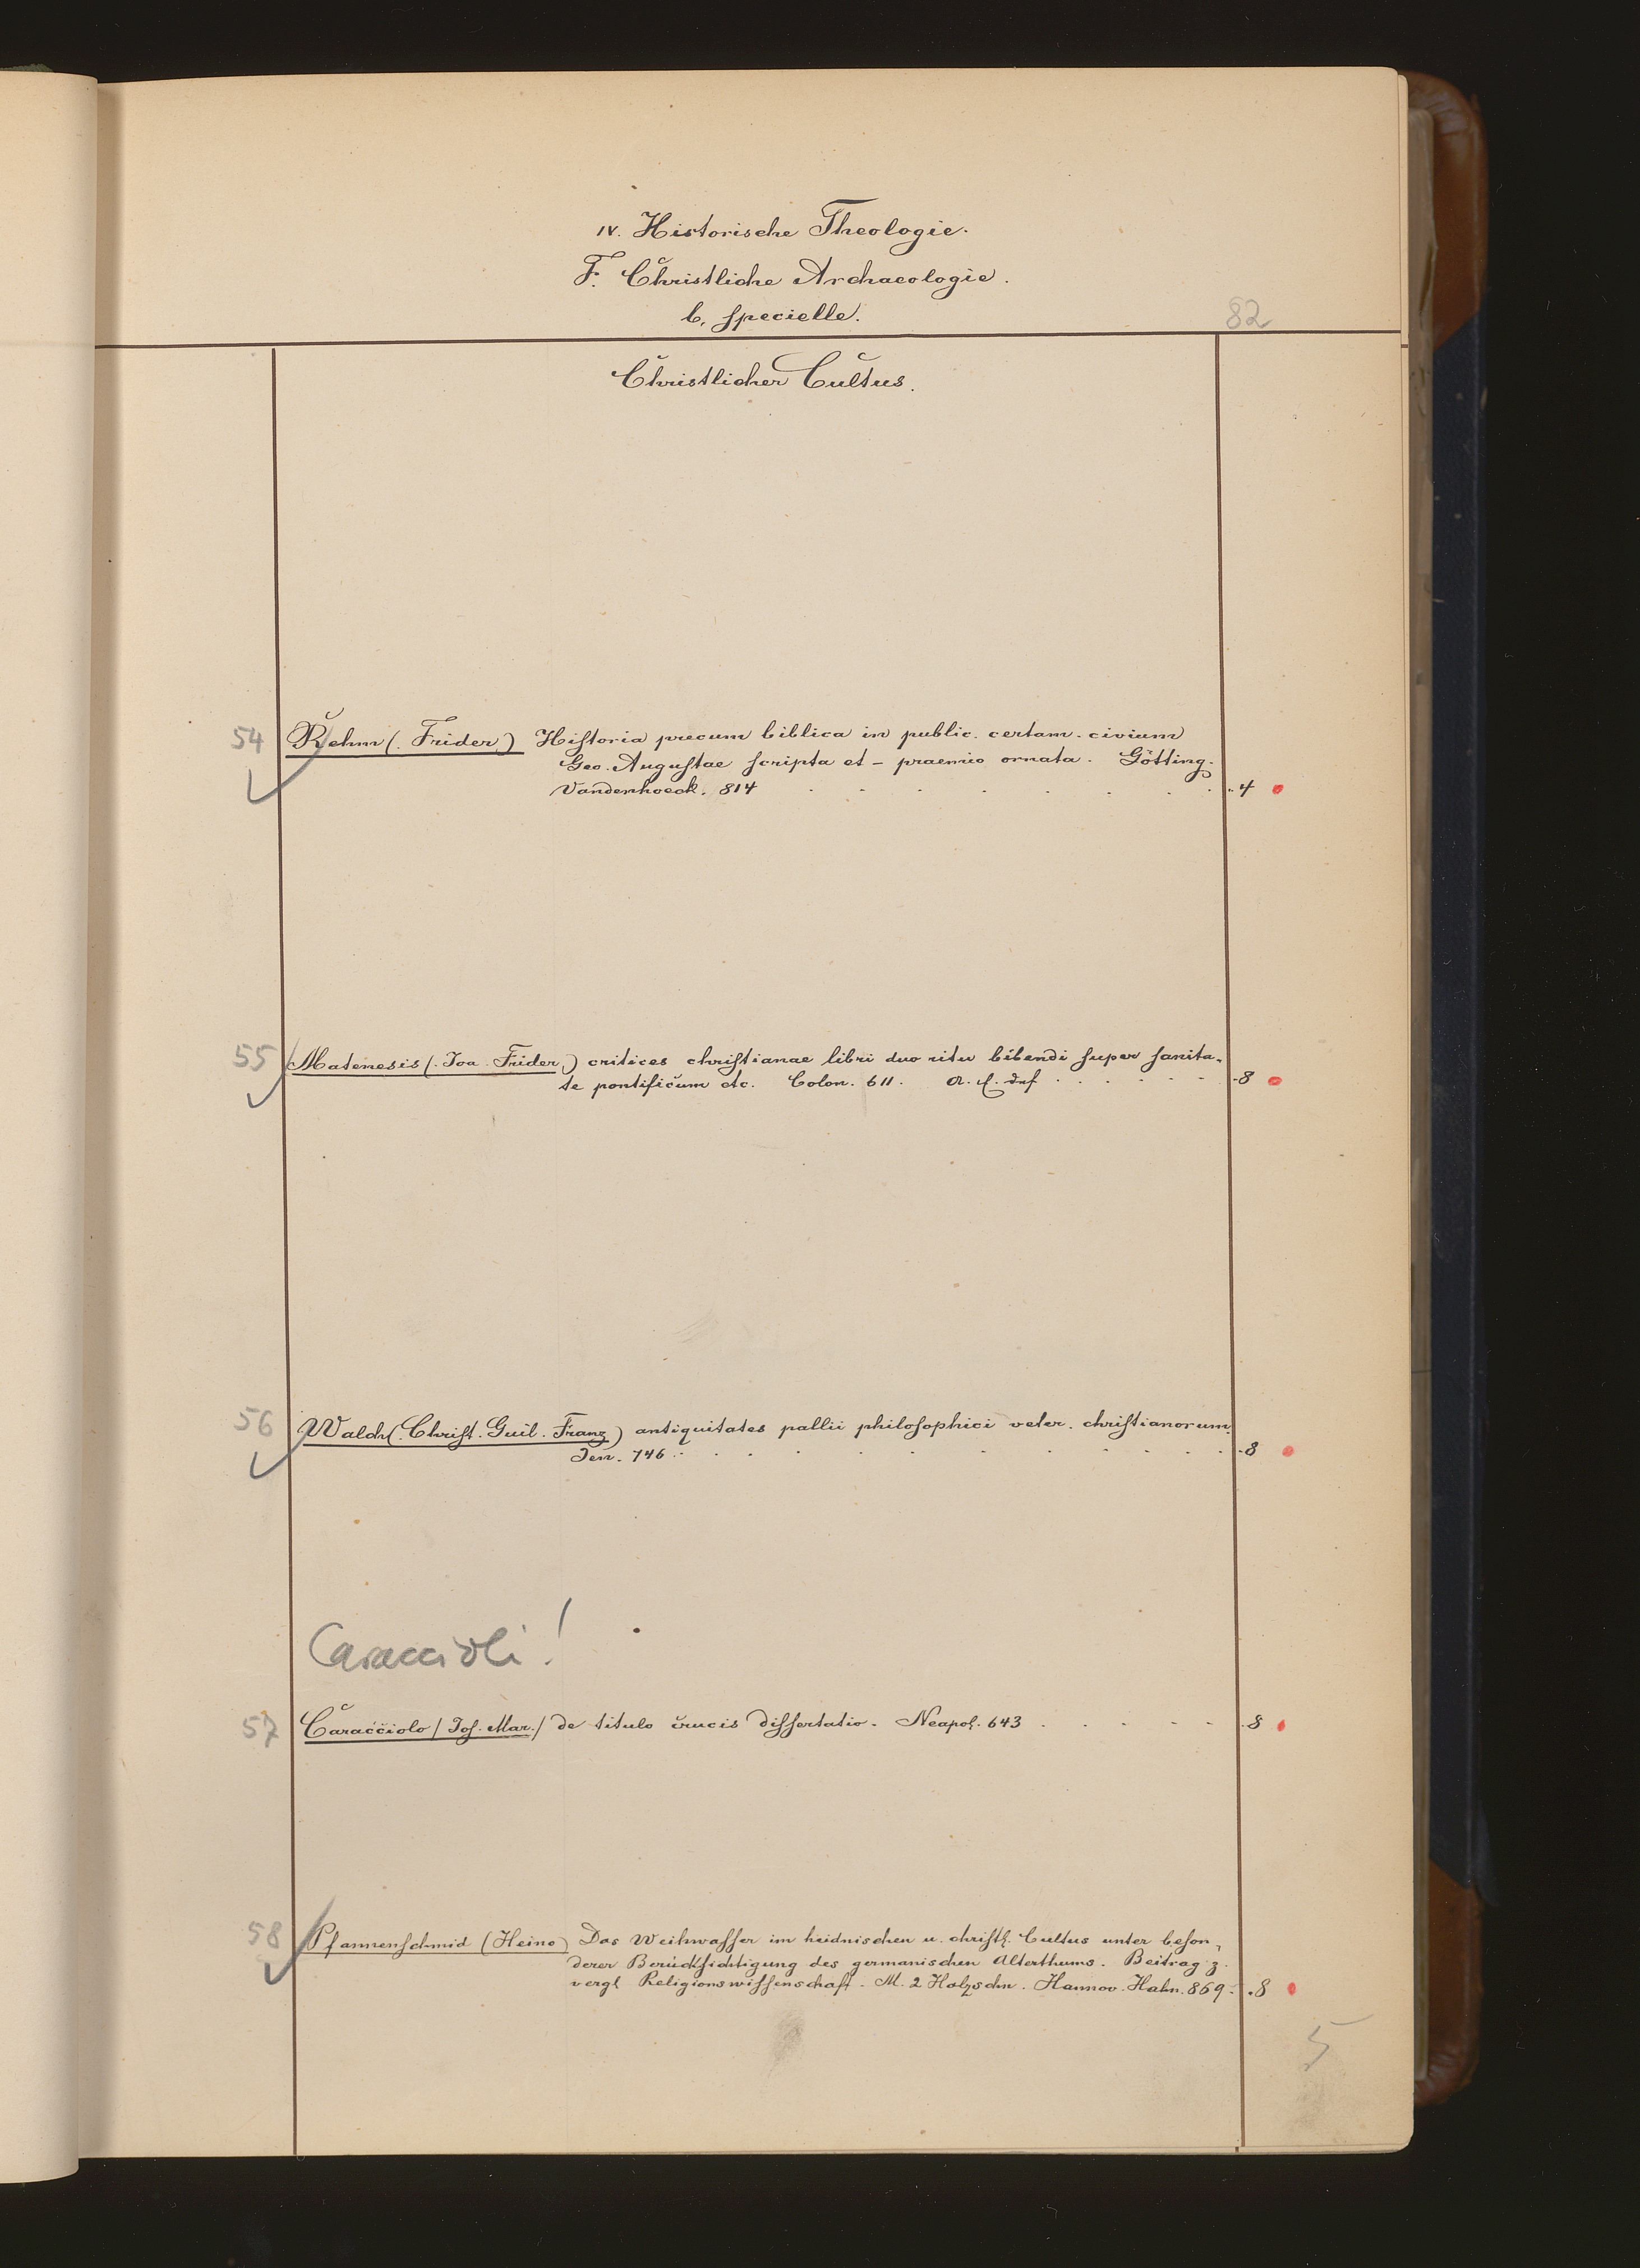 IV. Historische Theologie.
F. Christliche Archaeologie.
b, specielle.
82
Christlicher Cultus.
54 Rehm (. Frider) Historia precum biblica in public. certam. civium
Geo. Augustae scripta et - praemio ornata. Götting.
Vandenhoeck. 814 . . . . . . . . 4
55 Matenesis (. Joa. Frider) critices christianae libri duo ritu bibendi super sanita-
te pontificum etc. Colon. 611. . . . . . . 8
56 Walch (. Christ. Guil. Franz) antiquitates pallii philosophici veter. christianorum.
Jen. 746 . . . . . . . . . . 8
Caraccioli!
57 Caracciolo / Jos. Mar. / de titulo crucis dissertatio. Neapol. 643 . . . . . . 8
58 Pfannenschmid (Heino) Das Weihwasser im heidnischen u. christl. Cultus unter beson-
derer Berücksichtigung des germanischen Alterthums. Beitrag z.
vergl Religionswissenschaft. M. 2 Holzschn. Hannov. Hahn. 869. . 8
5